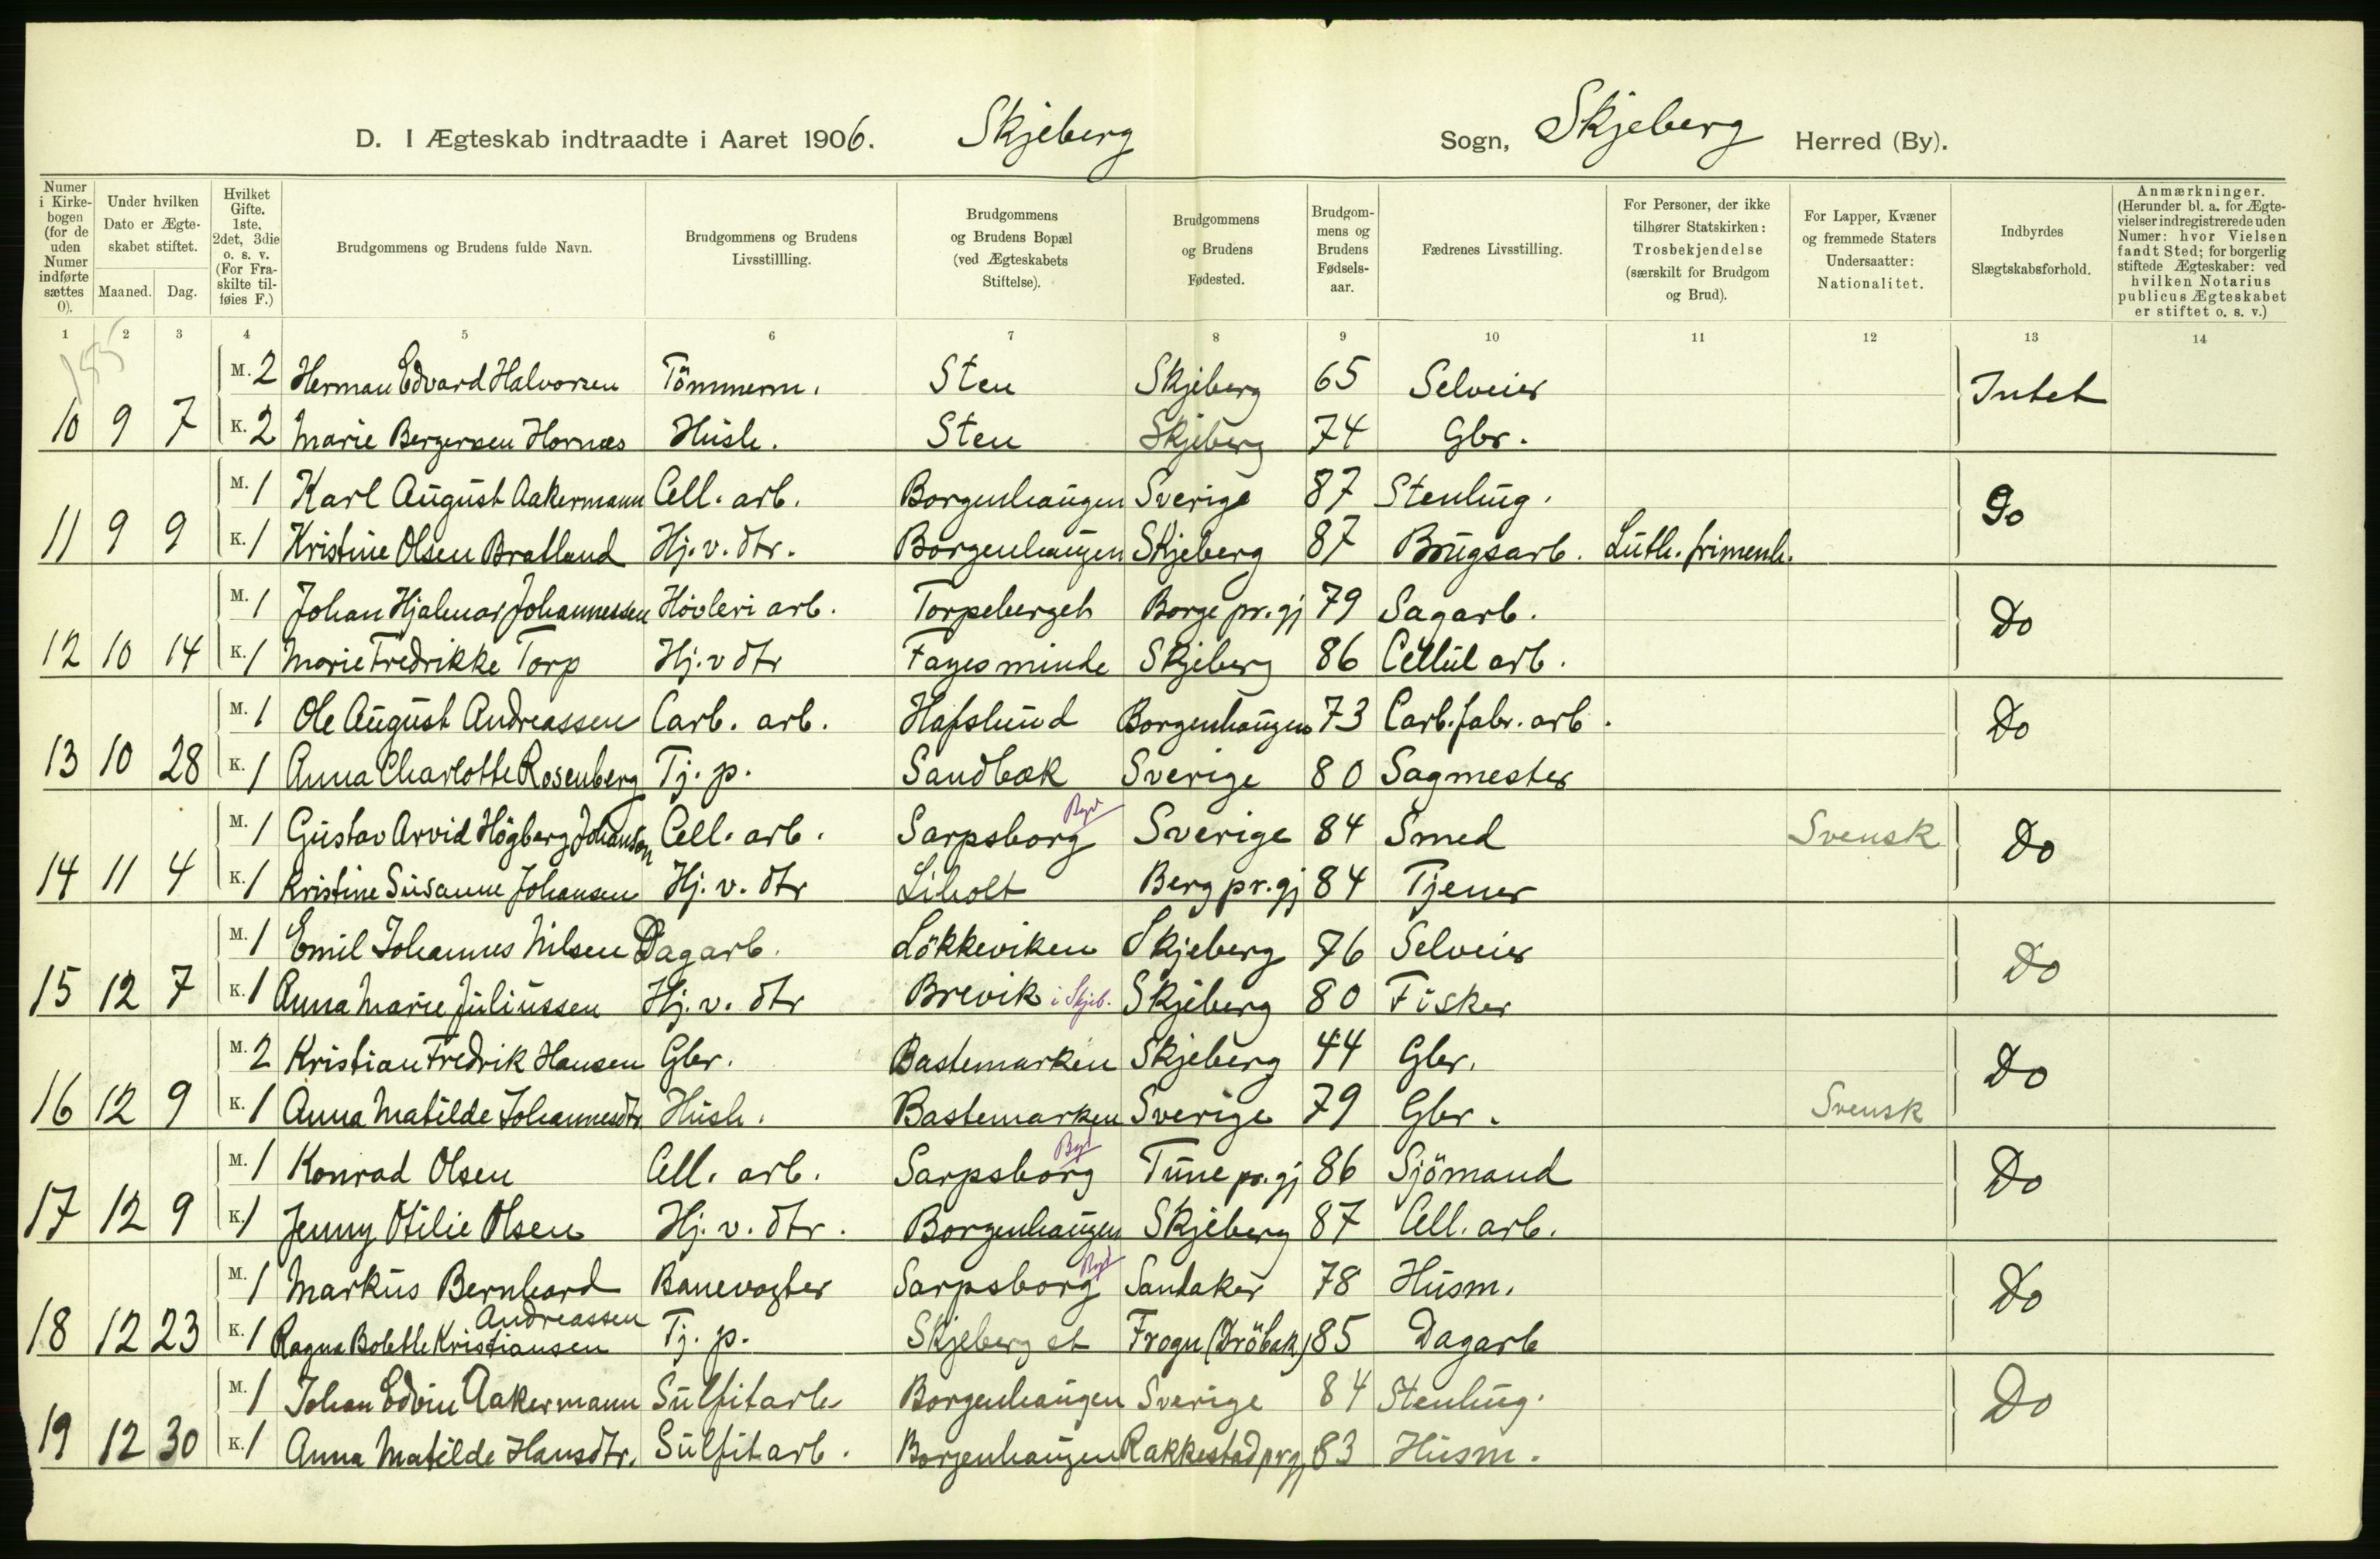 D. I Ægteskab indtraadte i Aaret 1906. Skjeberg Sogn, Skjeberg Herred (By).
Numer i Kirkebogen (for de uden Numer indførte sættes 0).
Under hvilken Dato er Ægteskabet stiftet.
Maaned. Dag.
Hvilket Gifte. 1ste, 2det, 3die o. s. v. (For Fraskilte tilføies F.)
Brudgommens og Brudens fulde Navn.
Brudgommens og Brudens Livsstillling.
Brudgommens og Brudens Bopæl (ved Ægteskabets Stiftelse).
Brudgommens og Brudens Fødested.
Brudgommens og Brudens Fødselsaar.
Fædrenes Livsstilling.
For Personer, der ikke tilhører Statskirken: Trosbekjendelse (særskilt for Brudgom og Brud).
For Lapper, Kvæner og fremmede Staters Undersaatter: Nationalitet.
Indbyrdes Slægtskabsforhold.
Anmærkninger. (Herunder bl. a. for Ægtevielser indregistrerede uden Numer: hvor Vielsen fandt Sted; for borgerlig stiftede Ægteskaber: ved hvilken Notarius publicus Ægteskabet er stiftet o. s. v.)
1 2 3 4 5 6 7 8 9 10 11 12 13 14
M. 2 Herman Edvard Halvorsen Tömmerm. Sten Skjeberg 65 Selveier Intet
10 9 7 K. 2 Marie Bergersen Hornæs Hush. Sten Skjeberg 74 Gbr.
M. 1 Karl August Aakermann Cell. arb. Borgenhaugen Sverige 87 Stenhug. Do
11 9 9 K. 1 Kristine Olsen Bratland Hj. v. dtr. Borgenhaugen Skjeberg 87 Brugsarb. Luth. frimenh.
M. 1 Johan Hjalmar Johannessen Høvleri arb. Torpeberget Borge pr.gj 79 Sagarb. Do
12 10 14 K. 1 Marie Fredrikke Torp Hj. v dtr Fagesminde Skjeberg 86 Cellul arb.
M. 1 Ole August Andreassen Carb. arb. Hafslund Borgenhaugen 73 Carb. fabr. arb. Do
13 10 28 K. 1 Anna Charlotte Rosenberg Tj. p. Sandbæk Sverige 80 Sagmester
M. 1 Gustav Arvid Högberg Johanson Cell. arb. Sarpsborg Sverige 84 Smed Svensk Do
14 11 4 K. 1 Kristine Susanne Johansen Hj. v. dtr Liholt Berg pr. gj 84 Tjener
M. 1 Emil Johannes Nilsen Dagarb. Lökkeviken Skjeberg 76 Selveier Do
15 12 7 K. 1 Anna Marie Juliussen Hj. v. dtr Brevik i Skjeb. Skjeberg 80 Fisker
M. 2 Kristian Fredrik Hansen Gbr. Bastemarken Skjeberg 44 Gbr. Do
16 12 9 K. 1 Anna Matilde Johannesdtr Hush. Bastemarken Sverige 79 Gbr. Svensk
M. 1 Konrad Olsen Cell. arb. Sarpsborg Tune pr. gj 86 Sjömand Do
17 12 9 K. 1 Jenny Otilie Olsen Hj. v. dtr. Borgenhaugen Skjeberg 87 Cell. arb.
M. 1 Markus Bernhard Andreassen Banevogter Sarpsborg Sandaker 78 Husm. Do
18 12 23 K. 1 Ragna Bolette Kristiansen Tj. p. Skjeberg st Frogn (Dröbak) 85 Dagarb
M. 1 Johan Edvin Aakermann Sulfitarb Borgenhaugen Sverige 84 Stenhug. Do
19 12 30 K. 1 Anna Matilde Hansdtr. Sulfitarb. Borgenhaugen Rakkestad prgj 83 Husm.